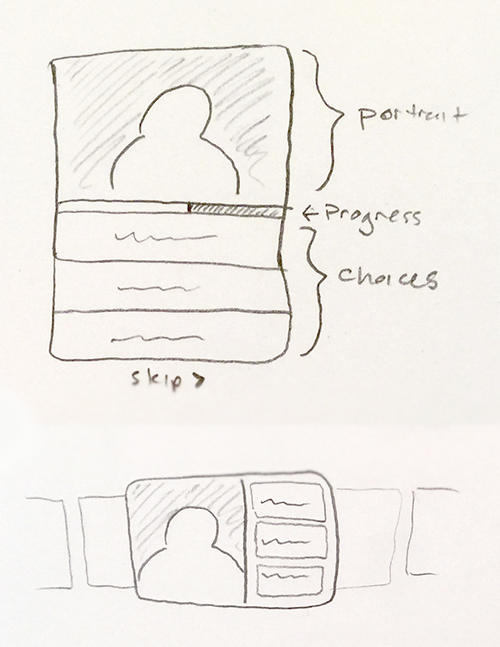 portrait
← Progress
choices
skip >